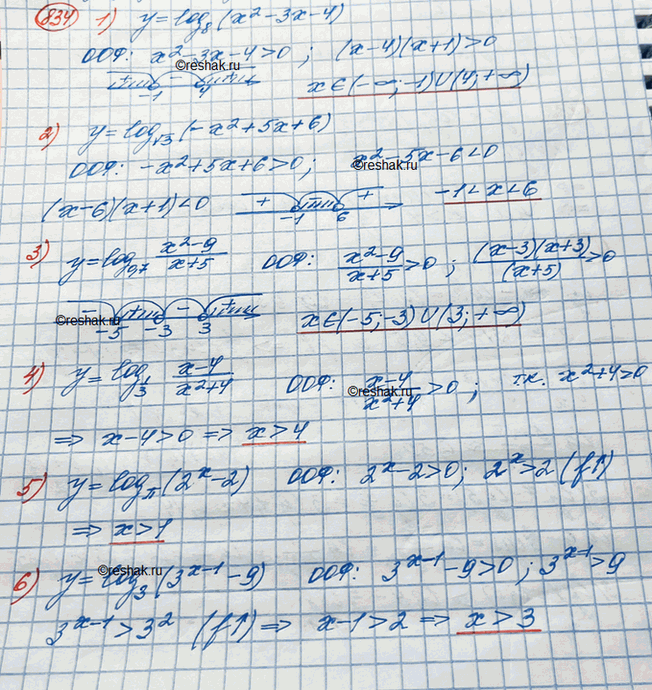 834 1) y = log₈(x² - 3x - 4)
ООФ: x² - 3x - 4 > 0 ; (x-4)(x+1) > 0
©reshak.ru
+ - +
-1 4 x ∈ (-∞; -1) ∪ (4; +∞)
2) y = log√3(-x² + 5x + 6)
ООФ: -x² + 5x + 6 > 0 ; x² - 5x - 6 < 0
(x-6)(x+1) < 0 + - + -1 < x < 6
-1 6
3) y = log₀,₇ (x²-9)/(x+5) ООФ: (x²-9)/(x+5) > 0 ; ((x-3)(x+3))/(x+5) > 0
- + - +
©reshak.ru
-5 -3 3 x ∈ (-5; -3) ∪ (3; +∞)
4) y = log_(1/3) (x-4)/(x²+4) ООФ: (x-4)/(x²+4) > 0 ; т.к. x²+4 > 0
©reshak.ru
⇒ x-4 > 0 ⇒ x > 4
5) y = log_π(2ˣ - 2) ООФ: 2ˣ - 2 > 0 ; 2ˣ > 2 (f↑)
⇒ x > 1
©reshak.ru
6) y = log₃(3ˣ⁻¹ - 9) ООФ: 3ˣ⁻¹ - 9 > 0 ; 3ˣ⁻¹ > 9
3ˣ⁻¹ > 3² (f↑) ⇒ x-1 > 2 ⇒ x > 3